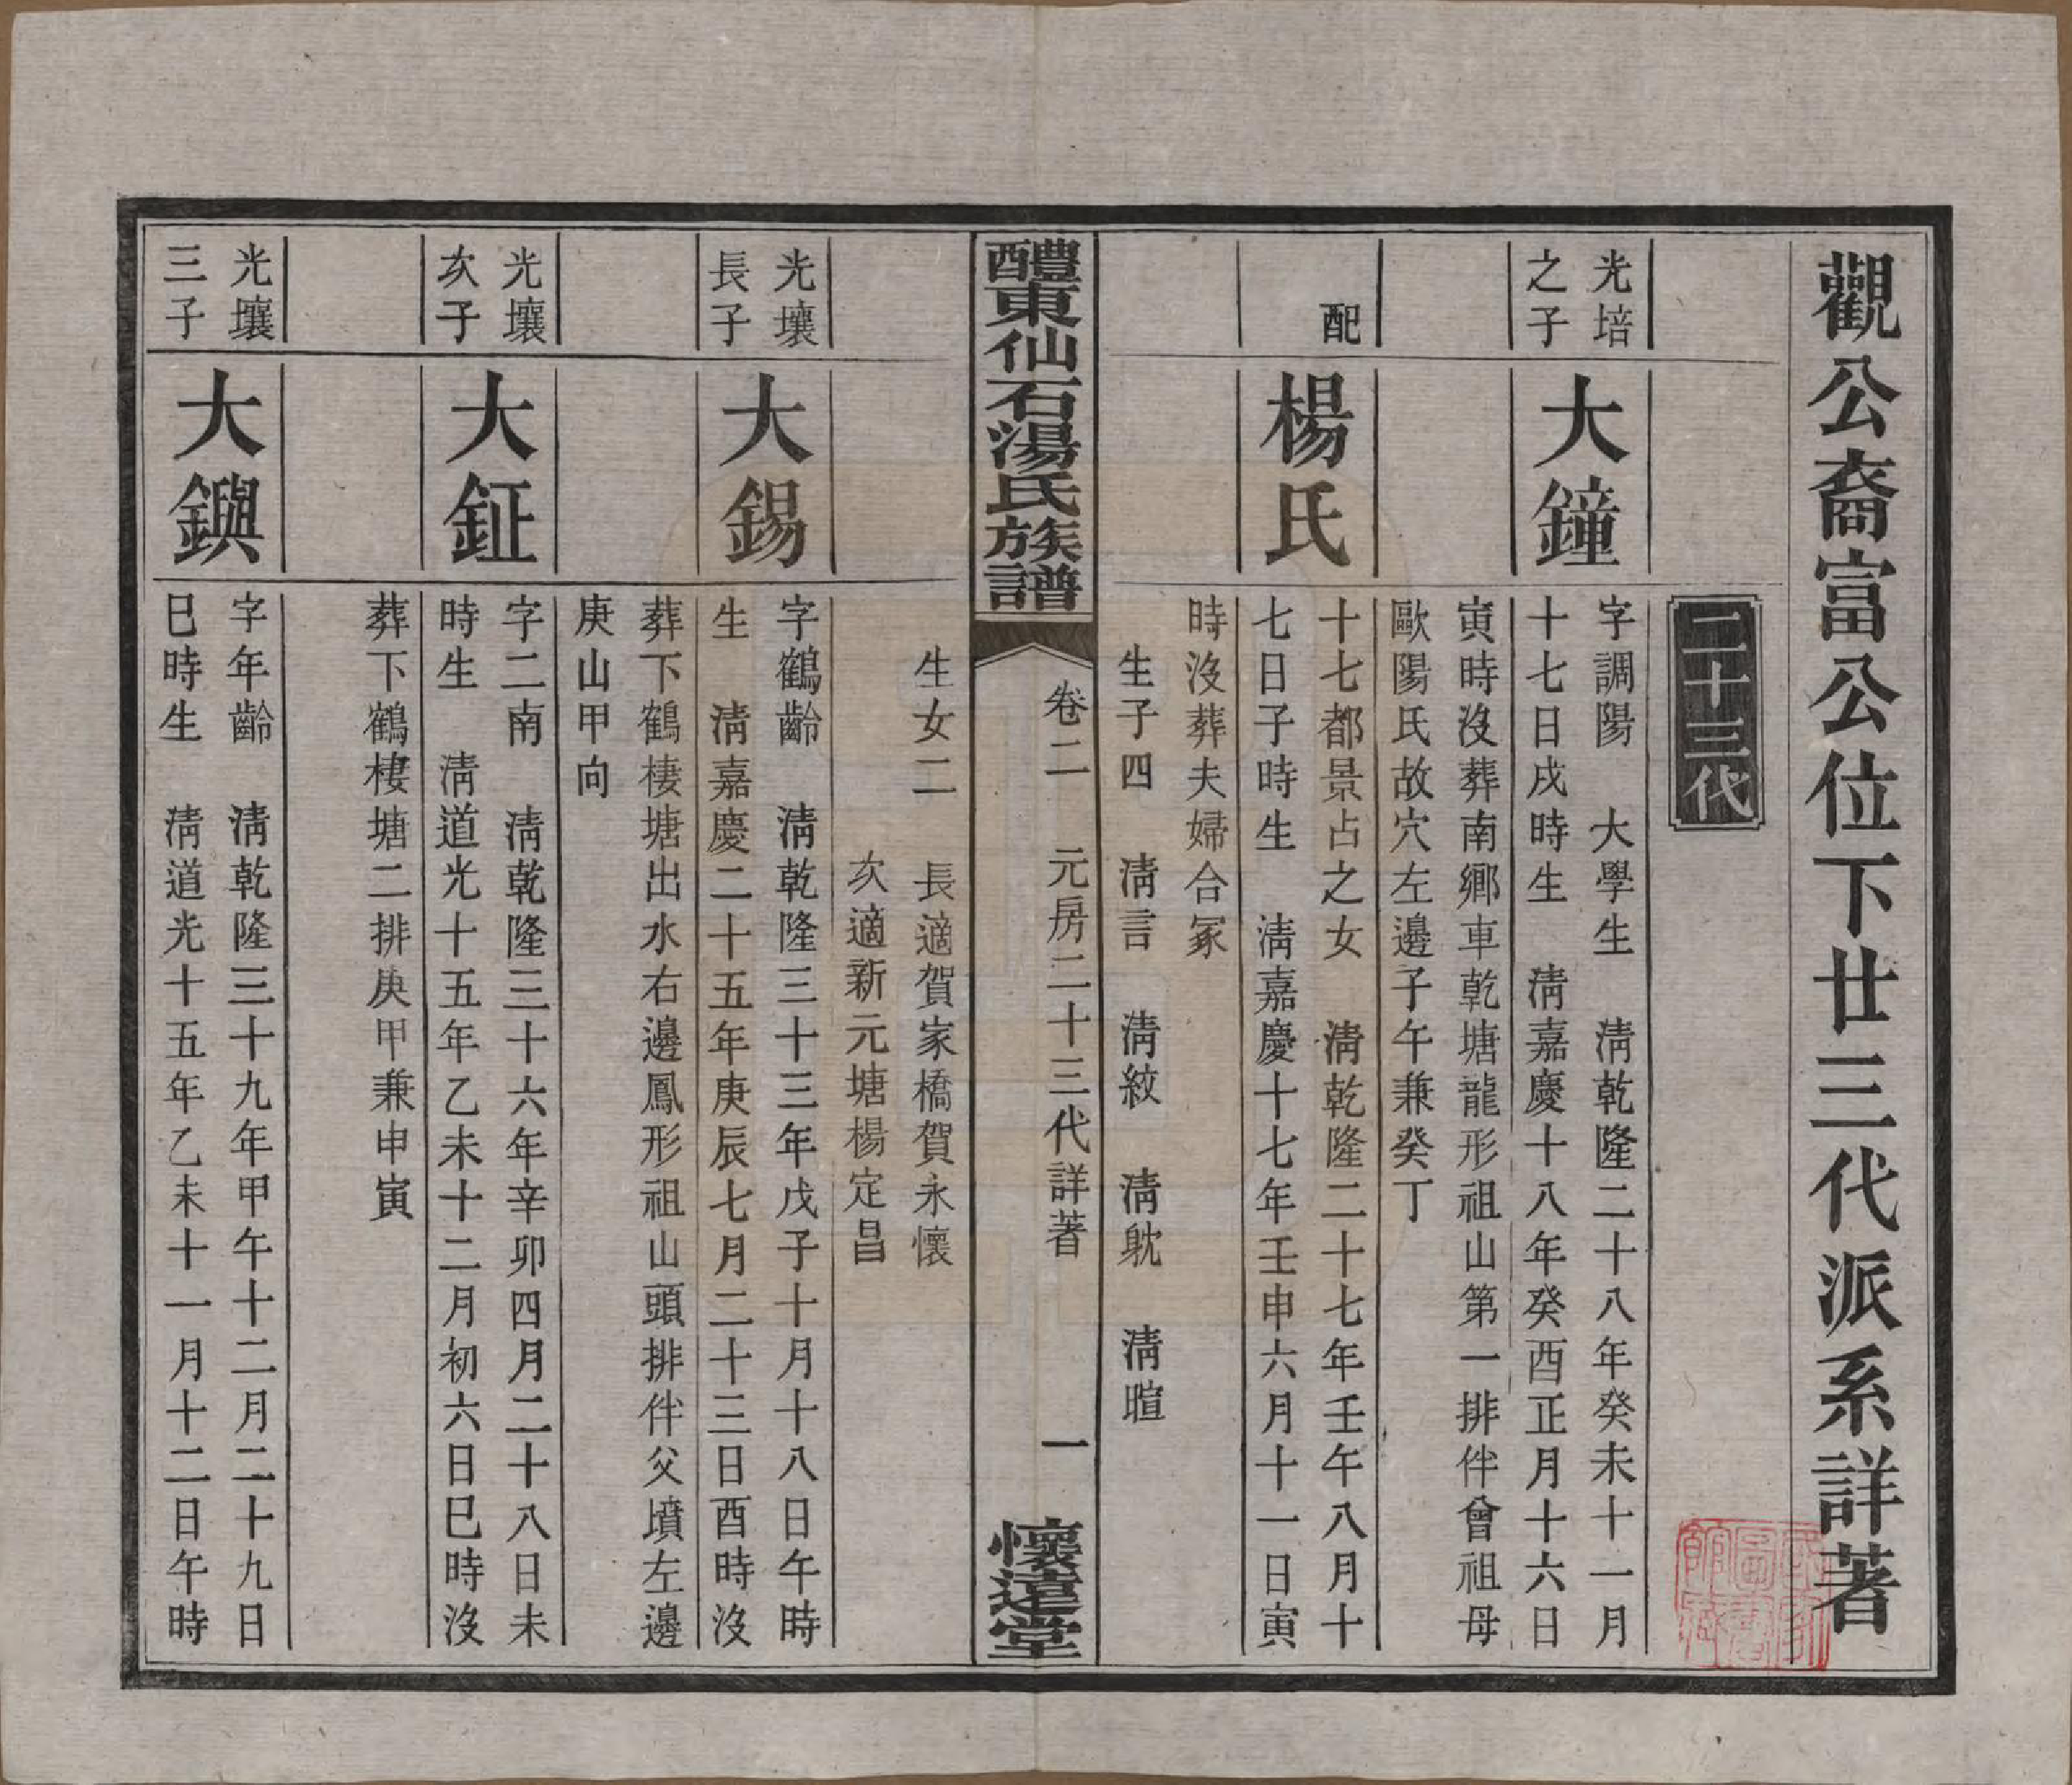 觀公裔富公位下廿三代派系詳著
二十三代
光培
之子
大鐘
字調陽　大學生　淸乾隆二十八年癸未十一月
十七日戌時生　淸嘉慶十八年癸酉正月十六日
寅時沒葬南鄉車乾塘龍形祖山第一排伴曾祖母
歐陽氏故穴左邊子午兼癸丁
配
楊氏
十七都景占之女　淸乾隆二十七年壬午八月十
七日子時生　淸嘉慶十七年壬申六月十一日寅
時沒葬夫婦合冢
生子四　淸言　淸紋　淸躭　淸暄
醴東仙石湯氏族譜
卷二　元房二十三代詳著
一
懷遠堂
生女二　長適賀家橋賀永懷
次適新元塘楊定昌
光壤
長子
大錫
字鶴齡　淸乾隆三十三年戊子十月十八日午時
生　淸嘉慶二十五年庚辰七月二十三日酉時沒
葬下鶴棲塘出水右邊鳳形祖山頭排伴父墳左邊
庚山甲向
光壤
次子
大鉦
字二南　淸乾隆三十六年辛卯四月二十八日未
時生　淸道光十五年乙未十二月初六日巳時沒
葬下鶴棲塘二排庚甲兼申寅
光壤
三子
大鐭
字年齡　淸乾隆三十九年甲午十二月二十九日
巳時生　淸道光十五年乙未十一月十二日午時